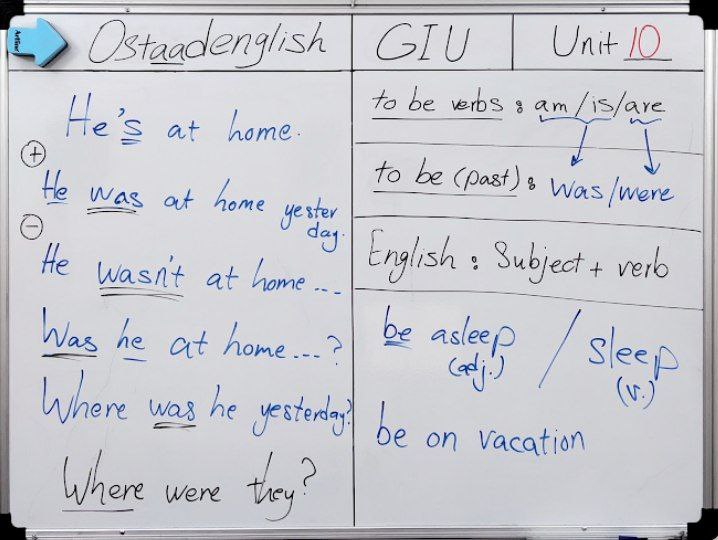 Artline
Ostaadenglish
GIU
Unit 10
He's at home.
+
He was at home yester
day.
−
He wasn't at home ...
Was he at home...?
Where was he yesterday?
Where were they?
to be verbs : am/is/are
to be (past) : was/were
English : Subject + verb
be asleep / sleep
(adj.) (v.)
be on vacation